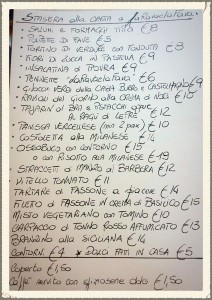 STASERA alla CARTA a LaFavolaFavà!
- SALUMI e FORMAGGI misti €8
- POLPETTE DI FAVE €5
- TORTINO di VERDURE con FONDUTA €8
- FIORI DI ZUCCA IN PASTELLA €9
- INSALATINA di €9
- PENNETTE €6
- GNOCCHI VERDI della CASA BURRO e CASTELMAGNO €9
- RAVIOLI del GIORNO alla CREMA di NOCI €15
- TAJARIN DI BRA e PISTACCHI oppure
AL RAGÙ DI LEPRE €12
- PANISSA VERCELLESE (min 2 pax) €10
- COSTOLETTA alla MILANESE €14
- OSSOBUCO con CONTORNO €15
o con RISOTTO ALLA MILANESE €19
- STRACCETTI di MANZO al BARBERA €12
- VITELLO TONNATO €11
- TARTARE di FASSONE a piacere €14
- FILETTO di FASSONE IN CREMA di BASILICO €15
- MISTO VEGETARIANO con TOMINO €10
- CARPACCIO di TONNO ROSSO AFFUMICATO €13
- BRANZINO alla SICILIANA €14
- CONTORNI €4 * DOLCI FATTI IN CASA €5
Coperto €1,50
Caffè servito con dolce €1,50